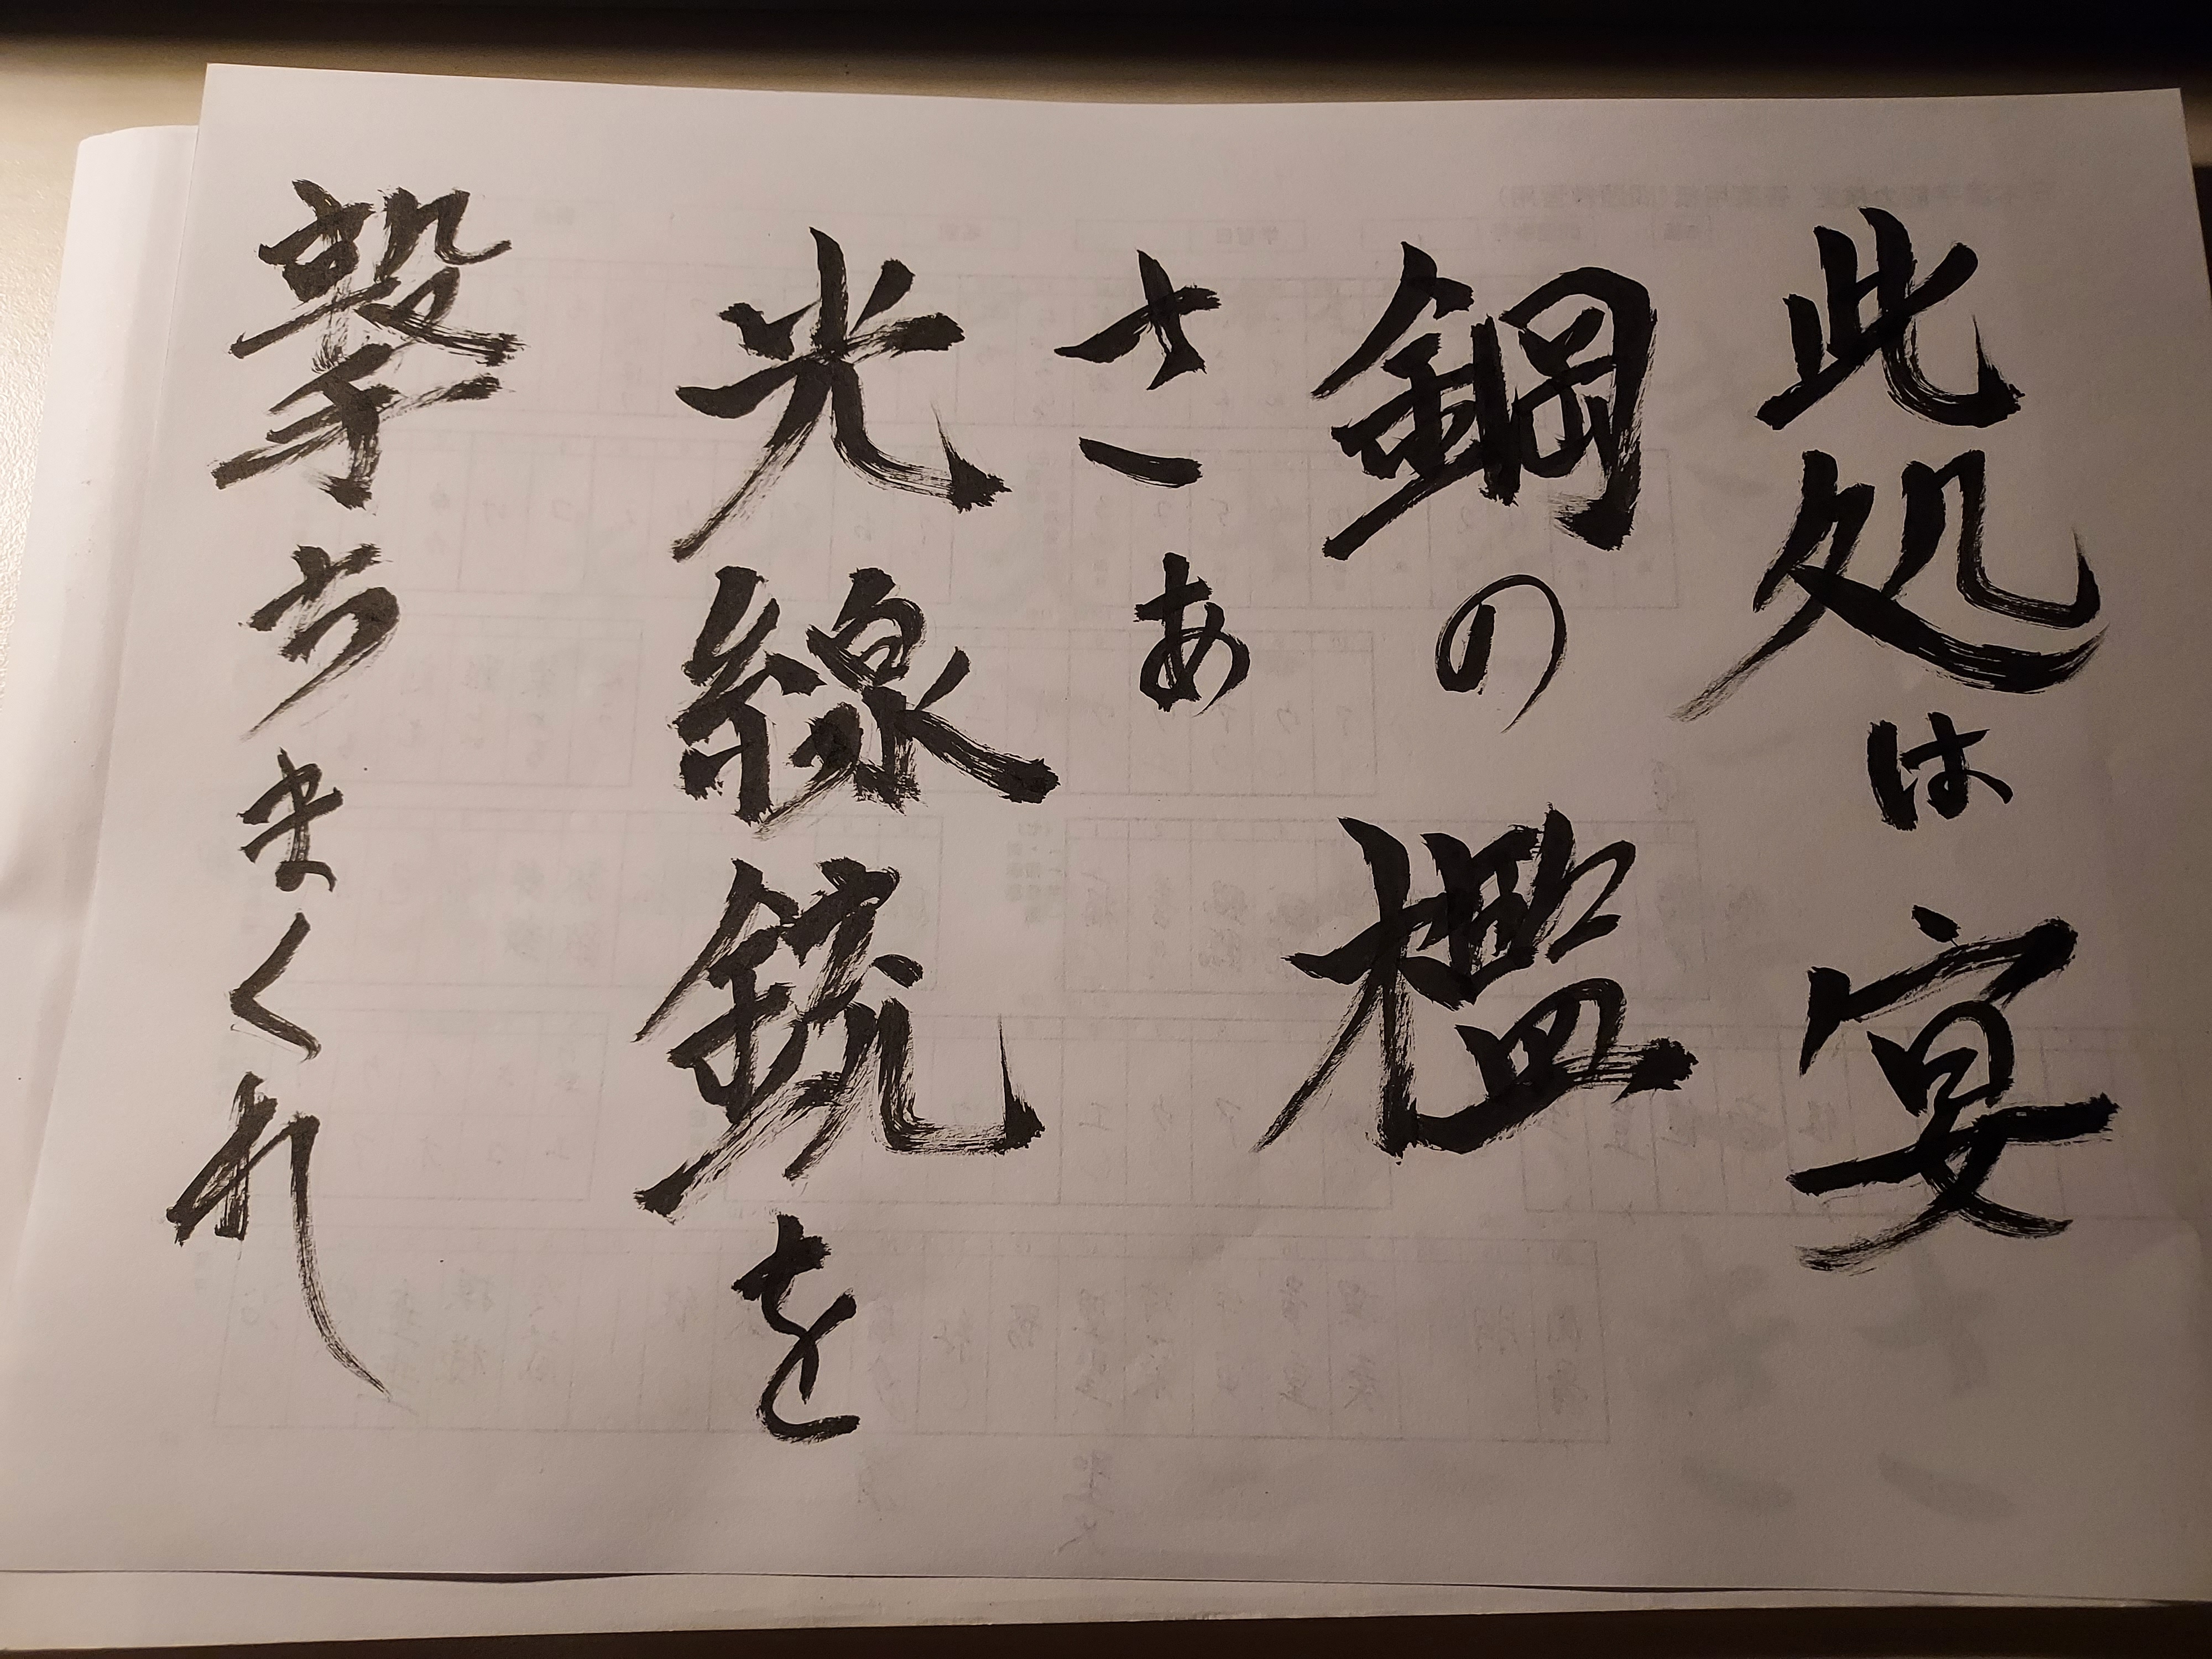 此処は宴
鋼の檻
さあ
光線銃を
撃ちまくれ